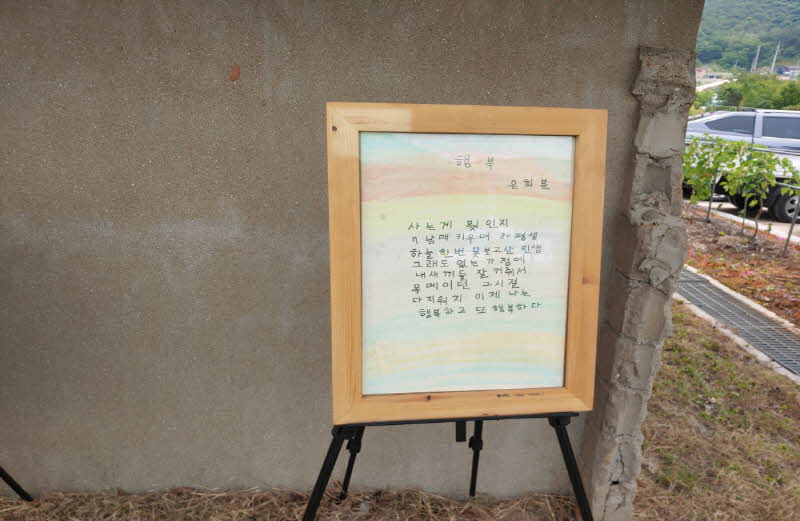 행 복
은희북
사는게 뭣인지
7남매 키우며 80평생
하늘 한번 못보고산 인생
그래도 없는 가정에
내새끼들 잘 커줘서
목메이던 그시절
다 지워지 이제 나는
행복하고 또 행복하다